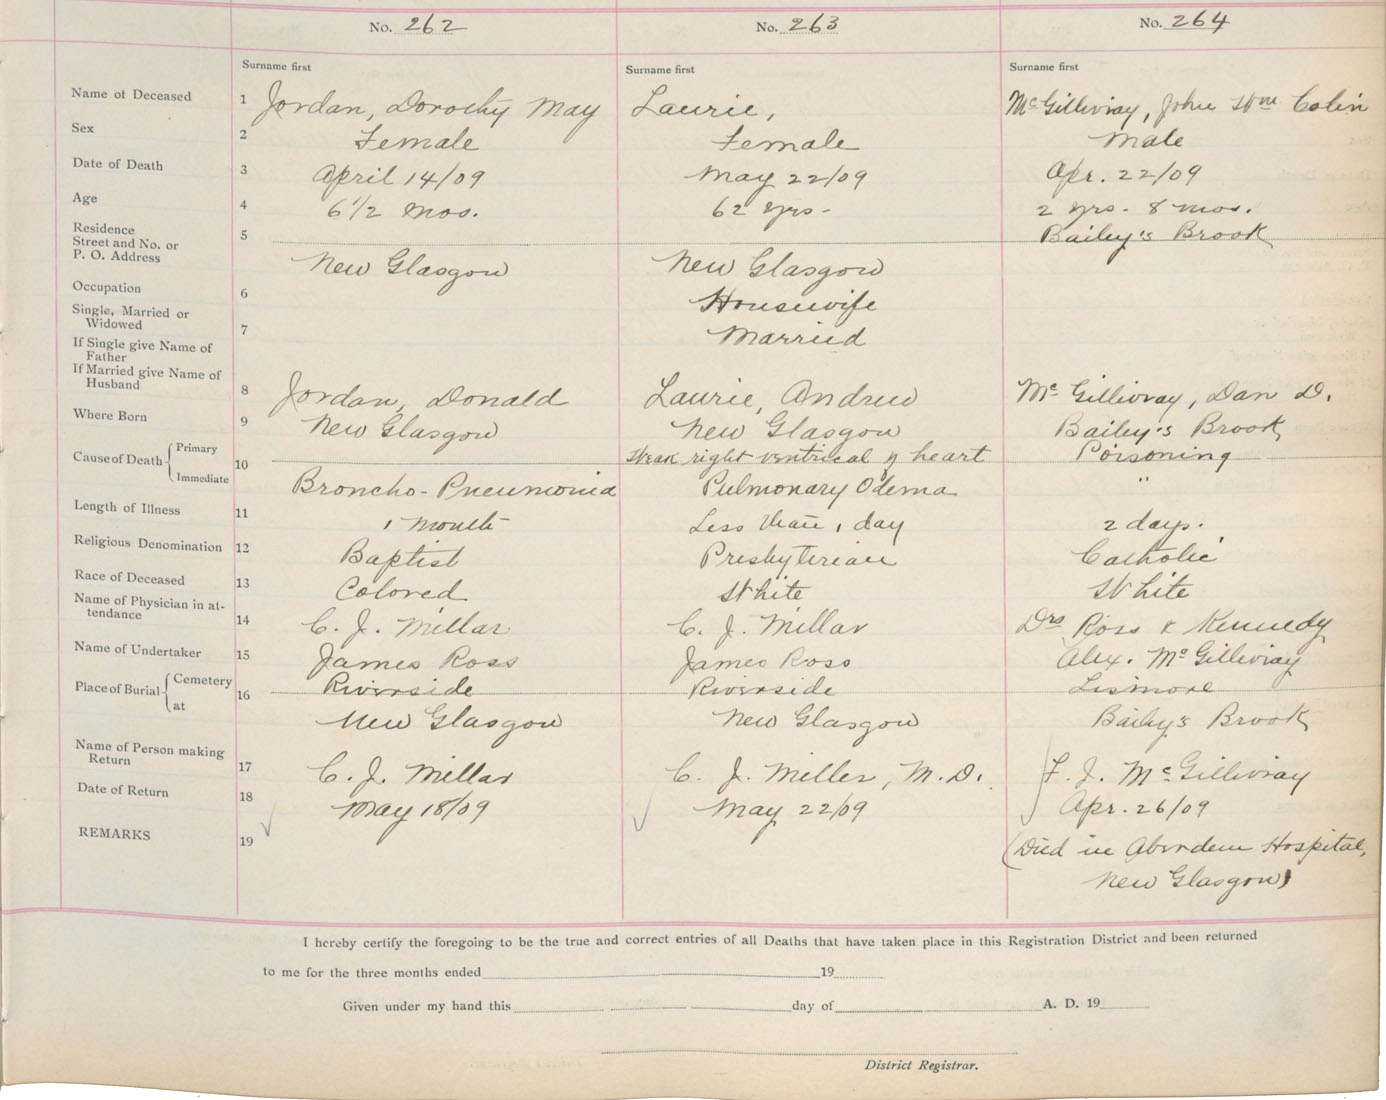 No. 262 No. 263 No. 264
Surname first Surname first Surname first
Name of Deceased 1 Jordan, Dorothy May Laurie, McGillivray, John Wm Colin
Sex 2 Female Female Male
Date of Death 3 April 14/09 May 22/09 Apr. 22/09
Age 4 6 1/2 mos. 62 yrs- 2 yrs. 8 mos.
Residence
Street and No. or 5 Bailey's Brook
P. O. Address New Glasgow New Glasgow
Occupation 6 Housewife
Single, Married or
Widowed 7 Married
If Single give Name of
Father
If Married give Name of
Husband 8 Jordan, Donald Laurie, Andrew McGillivray, Dan D.
Where Born 9 New Glasgow New Glasgow Bailey's Brook
Cause of Death Primary 10 Weak right ventrical of heart Poisoning
Immediate Broncho-Pneumonia Pulmonary Odema "
Length of Illness 11 1 month Less than 1 day 2 days.
Religious Denomination 12 Baptist Presbyterian Catholic
Race of Deceased 13 Colored White White
Name of Physician in at-
tendance 14 C. J. Millar C. J. Millar Drs Ross & Kennedy
Name of Undertaker 15 James Ross James Ross Alex. McGillivray
Place of Burial Cemetery 16 Riverside Riverside Lismore
at New Glasgow New Glasgow Bailey's Brook
Name of Person making
Return 17 C. J. Millar C. J. Miller, M.D. F. J. McGillivray
Date of Return 18 May 18/09 May 22/09 Apr. 26/09
REMARKS 19 (Died in Aberdeen Hospital,
New Glasgow)
I hereby certify the foregoing to be the true and correct entries of all Deaths that have taken place in this Registration District and been returned
to me for the three months ended 19
Given under my hand this day of A. D. 19
District Registrar.